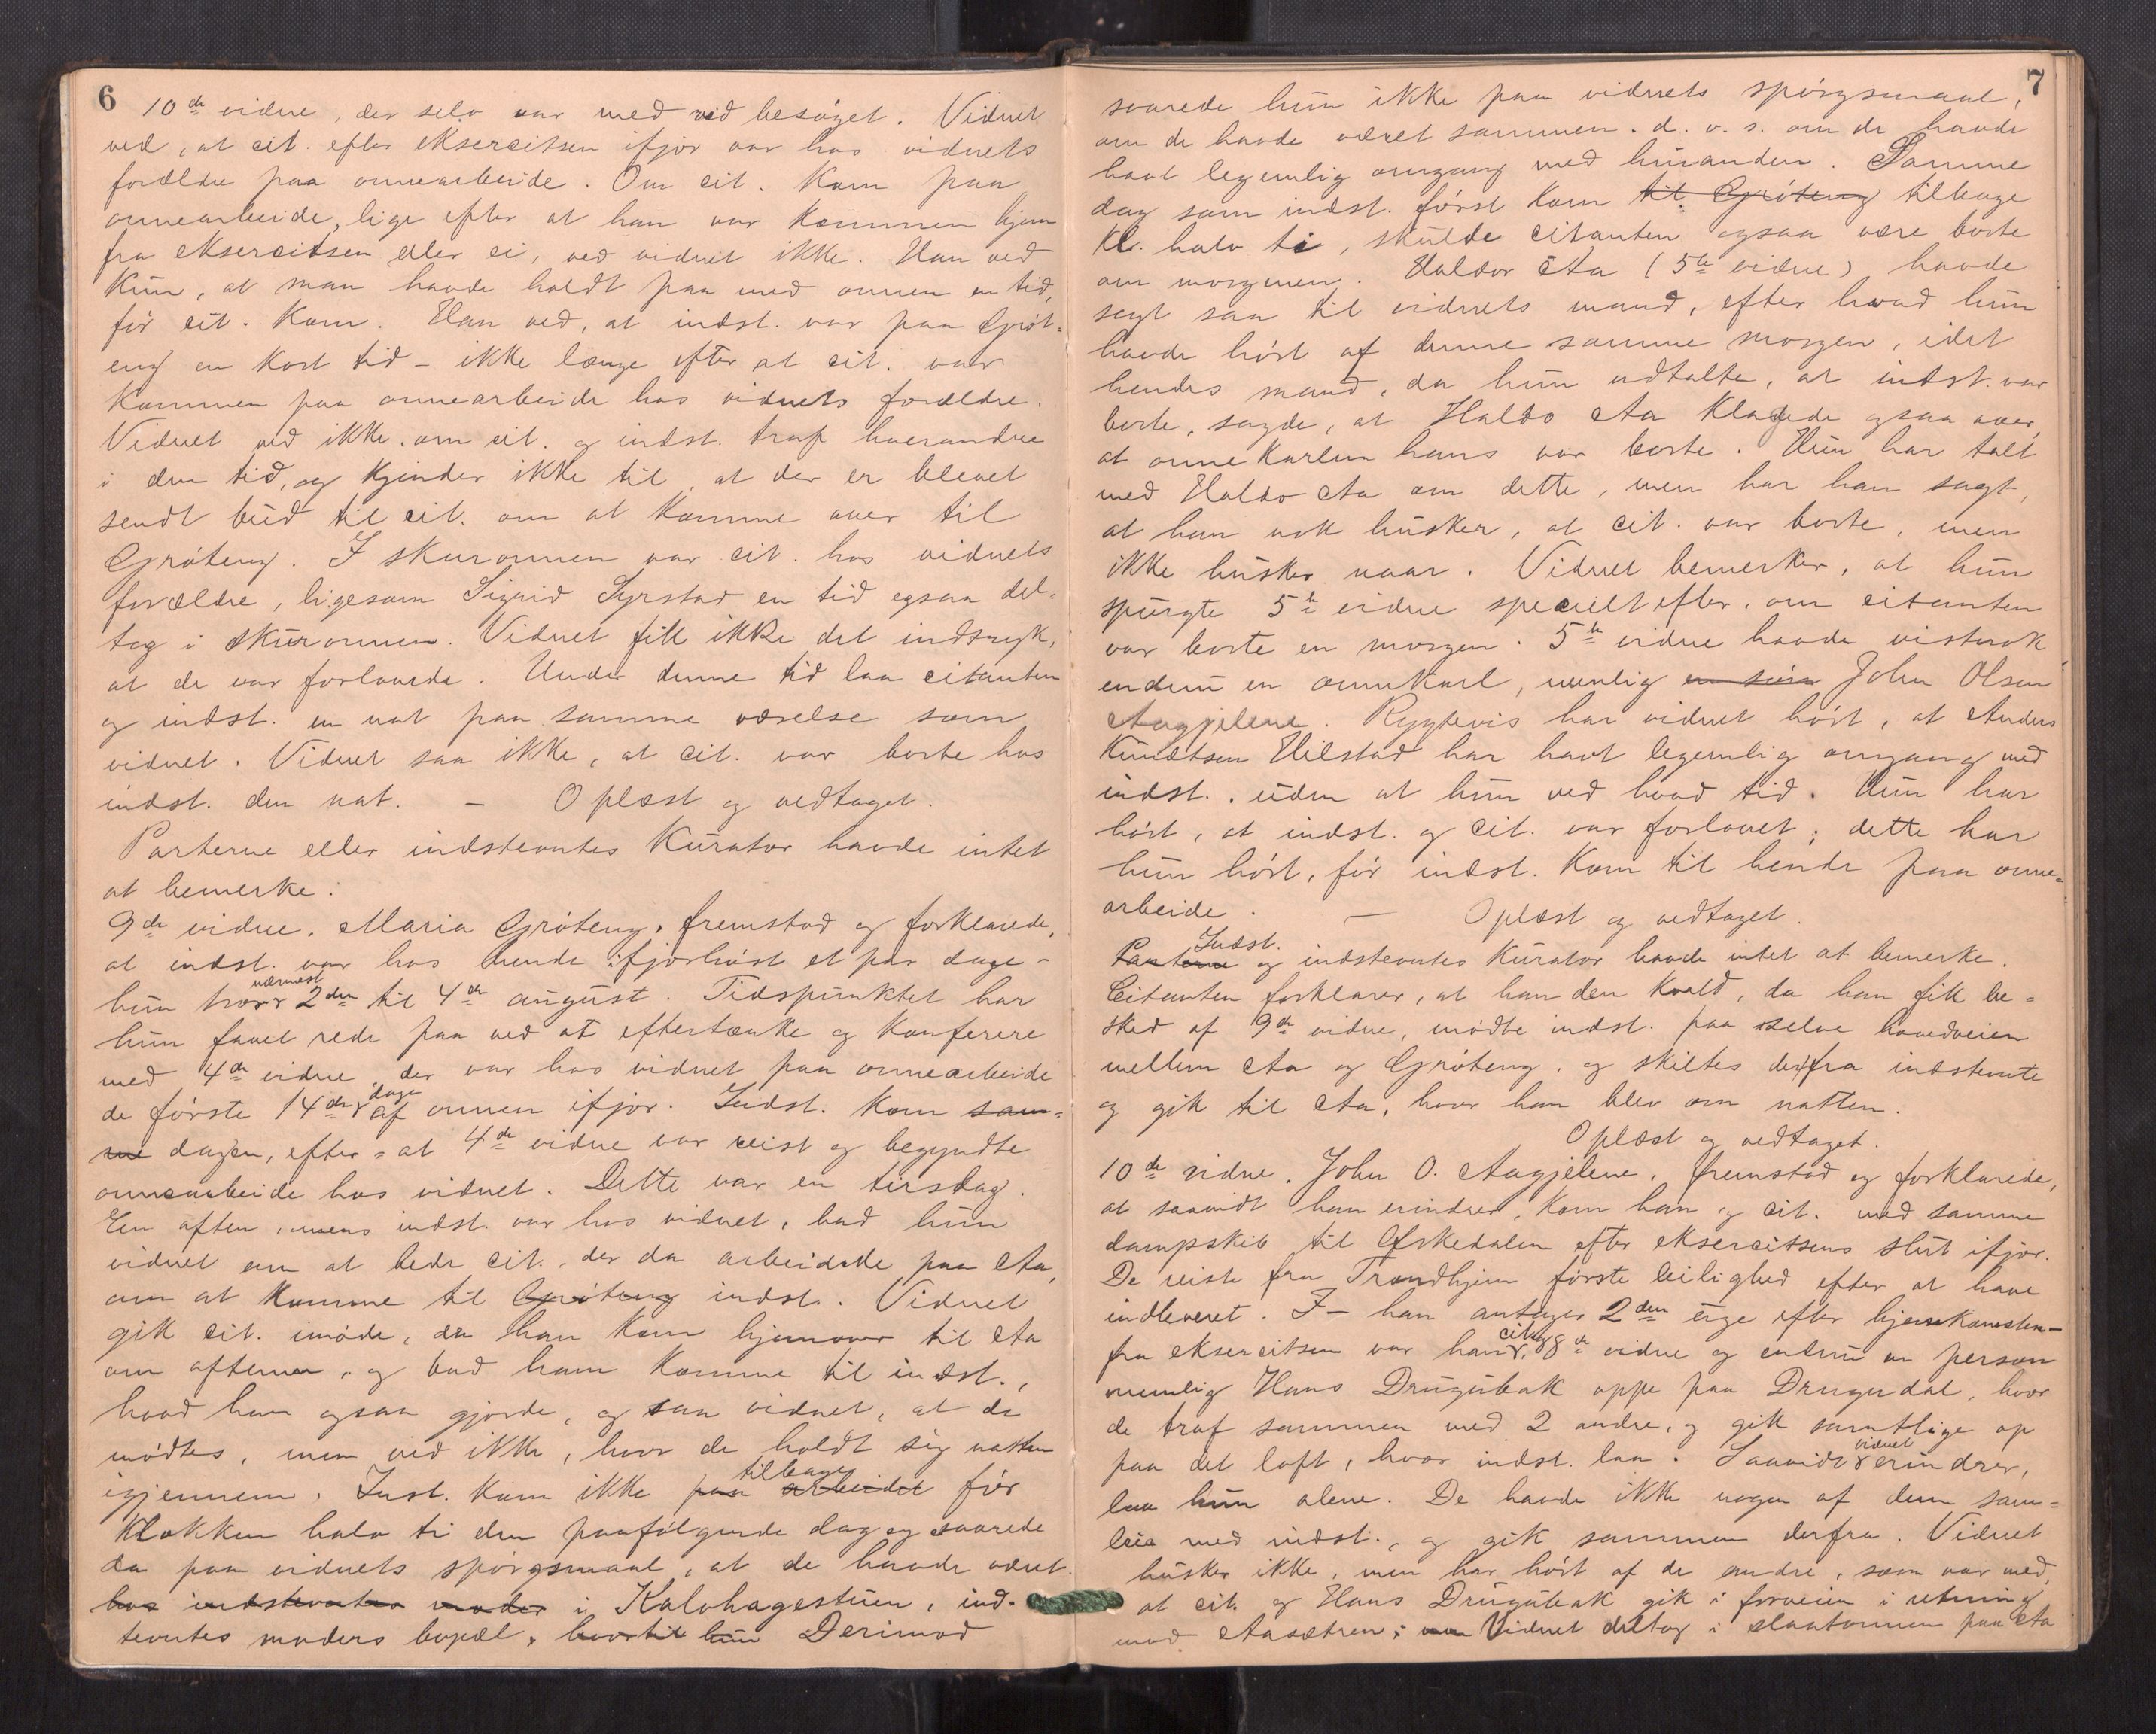 6
10de vidne, der selv var med ved besøget. Vidnet
ved, at cit. efter eksercitsen ifjor var hos vidnets
forældre paa onnearbeide. Om cit. kom paa
onnearbeide, lige efter at han var kommen hjem
fra eksercitsen eller ei, ved vidnet ikke. Han ved
kun, at man havde holdt paa med onnen en tid,
før cit. kom. Han ved, at indst. var paa Grøt-
eng en kort tid - ikke længe efter at cit. var
kommen paa onnearbeide hos vidnets forældre.
Vidnet ved ikke, om cit. og indst. traf hverandre
i den tid, og kjender ikke til, at der er blevet
sendt bud til cit. om at komme over til
Grøteng. I skuronnen var cit. hos vidnets
forældre, ligesom Sigrid Syrstad en tid ogsaa del-
tog i skuronnen. Vidnet fik ikke det indtryk,
at de var forlovede. Under denne tid laa citanten
og indst. en nat paa samme værelse som
vidnet. Vidnet saa ikke, at cit. var borte hos
indst. den nat. - Oplæst og vedtaget.
Parterne eller indstevntes kurator havde intet
at bemerke.
9de vidne. Maria Grøteng, fremstod og forklarede,
at indst. var hos hende ifjorhøst et par dage -
hun tror nærmest 2den til 4de august. Tidspunktet har
hun faaet rede paa ved at eftertænke og konferere
med 4de vidne, der var hos vidnet paa onnearbeide
de første 14de dage af onnen ifjor. Indst. kom sam-
me dagen, efter-at 4de vidne var reist og begyndte
onnearbeide hos vidnet. Dette var en tirsdag.
En aften, mens indst. var hos vidnet, bad hun
vidnet om at bede cit., der da arbeidede paa Aa,
om at komme til Grøteng indst. Vidnet
gik cit. imøde, da han kom hjemover til Aa
om aftenen, og bad ham komme til indst.,
hvad han ogsaa gjorde, og saa vidnet, at de
mødtes, men ved ikke, hvor de holdt sig natten
igjennem. Inst. kom ikke paa arbeidet tilbage før
klokken halv ti den paafølgende dag og svarede
da paa vidnets spørgsmaal, at de havde været
hos indstevntes moder i Kalvhagestuen, ind-
tevntes moders bopæl, hvortil hun Derimod
7
svarede hun ikke paa vidnets spørgsmaal,
om de havde været sammen. d. v. s. om de havde
havt legemlig omgang med hinanden. Samme
dag som indst. først kom til Grøteng tilbage
kl. halv ti, skulde citanten ogsaa være borte
om morgenen. Haldor Aa (5te vidne) havde
sagt saa til vidnets mand, efter hvad hun
havde hørt af denne samme morgen, idet
hendes mand, da hun udtalte, at indst. var
borte, sagde, at Haldo Aa klagede ogsaa over,
at onnekarlen hans var borte. Hun har talt
med Haldo Aa om dette, men har han sagt,
at han nok husker, at cit. var borte, men
ikke husker naar. Vidnet bemerker, at hun
spurgte 5te vidne specielt efter, om citanten
var borte en morgen. 5te vidne havde vistnok
endnu en onnekarl, nemlig en søn John Olsen
Aagjelene. Rygtevis har vidnet hørt, at Anders
Knudtsen Hilstad har havt legemlig omgang med
indst., uden at hun ved hvad tid. Hun har
hørt, at indst. og cit. var forlovet; dette har
hun hørt, før indst. kom til hende paa onne-
arbeide. - Oplæst og vedtaget.
Parterne Indst. og indstevntes kurator havde intet at bemerke.
Citanten forklarer, at han den kveld, da han fik be-
sked af 9de vidne, mødte indst. paa selve hovedveien
mellem Aa og Grøteng, og skiltes derfra indstevnte
og gik til Aa, hvor han blev om natten.
Oplæst og vedtaget.
10de vidne. John O. Aagjelene, fremstod og forklarede,
at saavidt han erindrer, kom han og cit. med samme
dampskib til Ørkedalen efter eksercitsens slut ifjor.
De reiste fra Trondhjem første leilighed efter at have
indleveret. I - han antager 2den uge efter hjemkomsten -
fra eksercitsen var han, cit., 8de vidne og endnu en person
nemlig Hans Drugubak oppe paa Drugudal, hvor
de traf sammen med 2 andre, og gik samtlige op
paa det loft, hvor indst. laa. Saavidt vidnet erindrer,
laa hun alene. De havde ikke nogen af dem sam-
leie med indst., og gik sammen derfra. Vidnet
husker ikke, men har hørt af de andre, som var med,
at cit. og Hans Drugubak gik i forveien i retning
mod Aasætren; Vidnet deltog i slaatonnen paa Aa